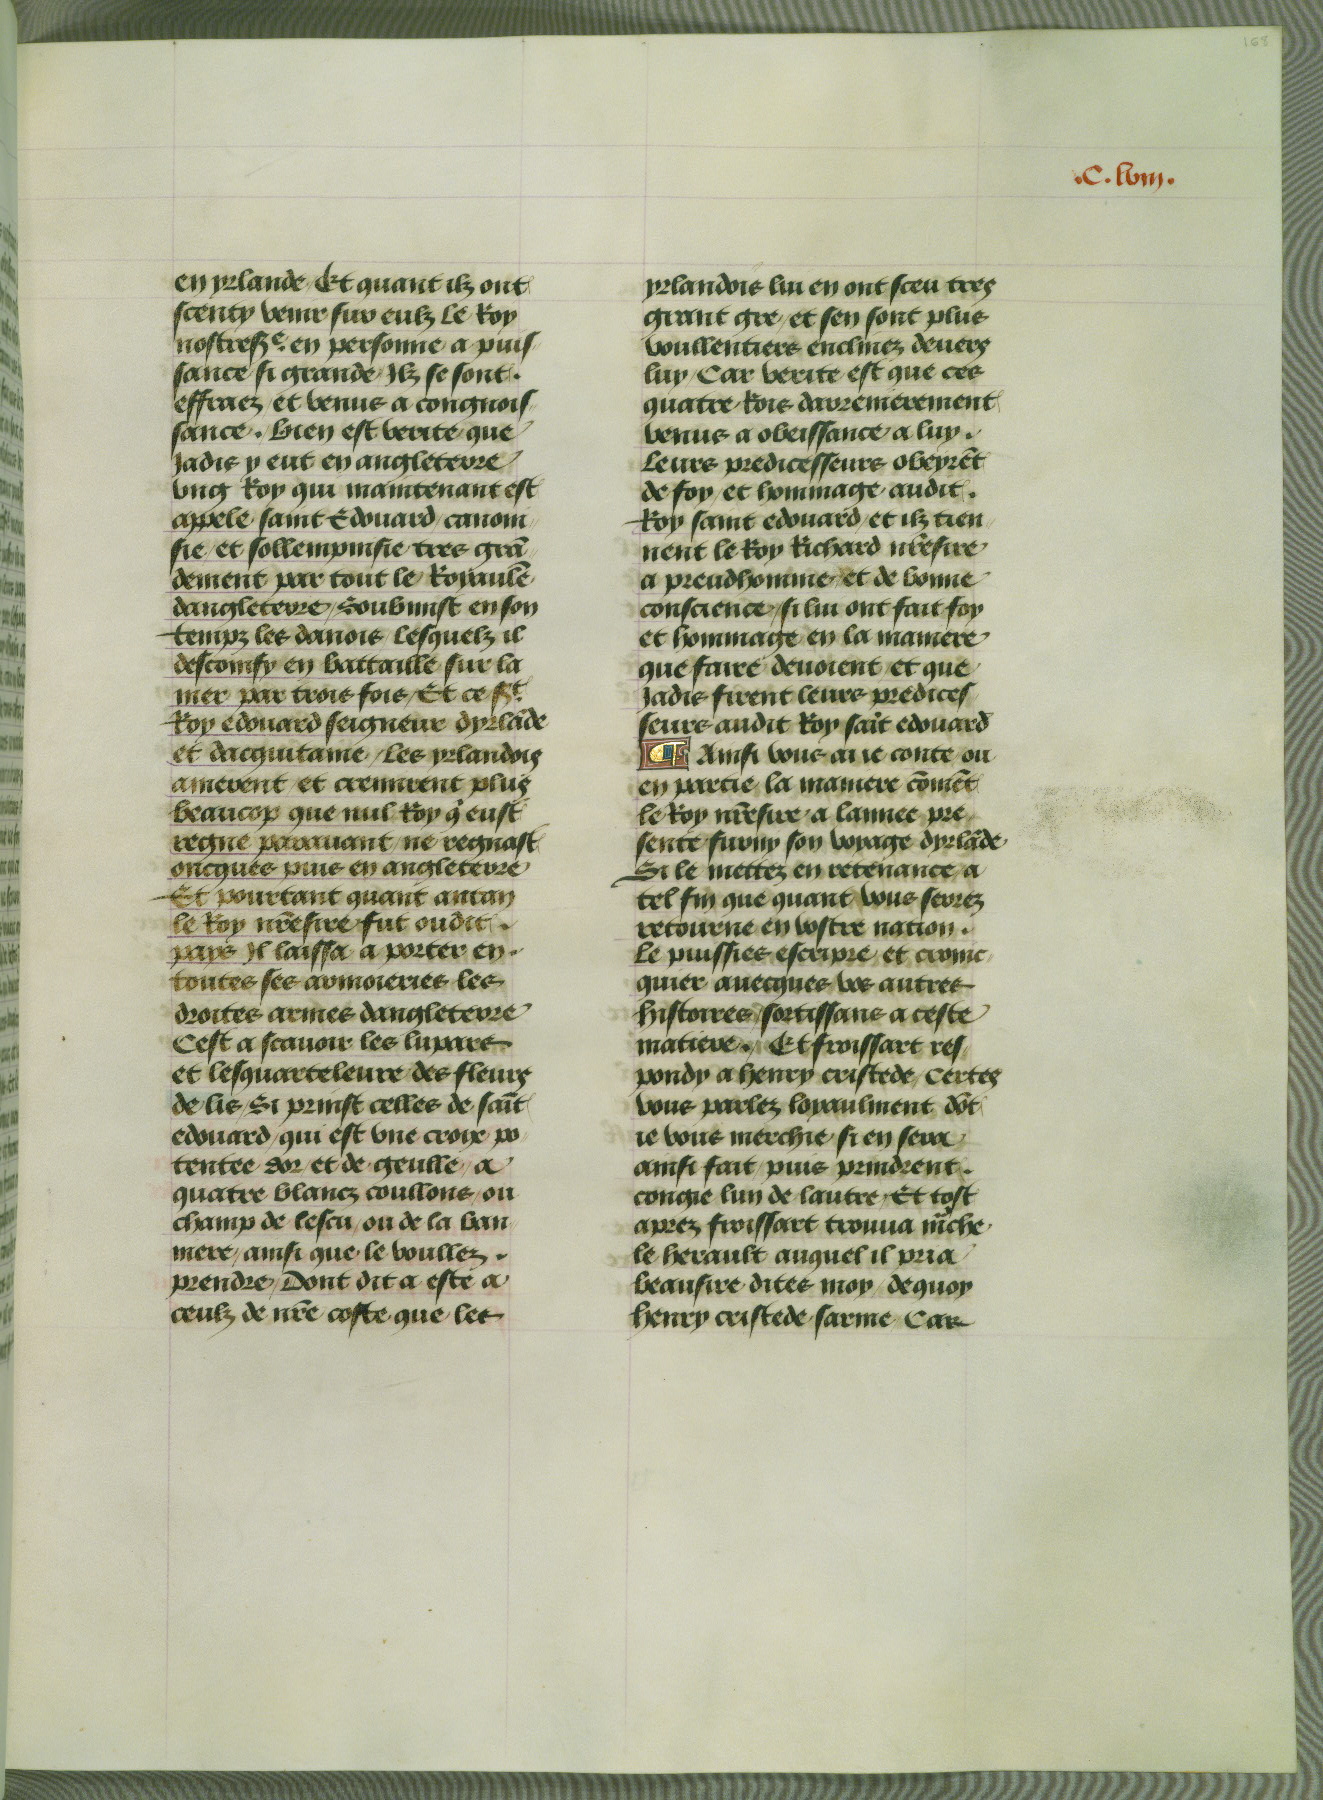 168
.C.lviii.
en yrlande Et quant ilz ont
scenty venir sur eulz Le Roy
nostre sre. en personne a puis
sance si grande Ilz se sont.
effraez et venus a congnois
sance. Bien est verite que
Jadis y eut en angleterre
ung Roy qui maintenant est
appele saint Edouard canoni
sie et sollempnisie tres grā
dement par tout le Royaulē
dangleterre Soubmist en son
tempz les danois lesquelz il
desconfy en battaille sur la
mer par trois fois Et ce st
Roy edouard seigneur dyrlāde
et dacquitaine Les yrlandois
amerent et cremirent plus
beaucop que nul Roy q̄ eust
regne paravant ne regnast
oncques puis en angleterre
Et pourtant quant antan
le Roy nr̄e sire fut oudit.
pays Il laissa a porter en.
toutes ses armoieries les
droites armes dangleterre
Cest a scavoir les lupars
et lesquarteleure des fleurs
de lis Si prinst celles de saīt
edouard qui est une croix po
tentee dor et de geulle a
quatre blancz coullons ou
champ de lescu ou de la ban
niere ainsi que le voullez.
prendre Dont dit a este a
ceulz de nr̄e coste que les
yrlandois lui en ont sceu tres
grant gre et sen sont plus
voullentiers enclinez devers
luy Car verite est que ces
quatre Rois darrenierement
venus a obeissance a luy.
Leurs predicesseurs obeyrēt
de foy et hommage audit.
Roy saint edouard et ilz tien
nent le Roy Richard nr̄e sire
a preudhomme et de bonne
conscience si lui ont fait foy
et hommage en la maniere
que faire devoient et que
Jadis firent leurs predices
seurs audit Roy saīt edouard
Ainsi vous ai ie conte ou
en partie la maniere cōmēt
le Roy nr̄e sire a lannee pre
sente furny son voyage dyrlāde
Si le mettez en retenance a
tel fin que quant vous serez
retourne en vostre nation.
Le puissies escripre et cronic
quier avecques vos autres
histoires sortissans a ceste
matiere. Et froissart res
pondy a henry cristede Certes
vous parlez loyaulment dōt
ie vous merchie si en sera
ainsi fait puis prindrent.
congie lun de lautre Et tost
aprez froissart trouva m̄che
le herault auquel il pria
beausire dites moy dequoy
henry cristede sarme Car